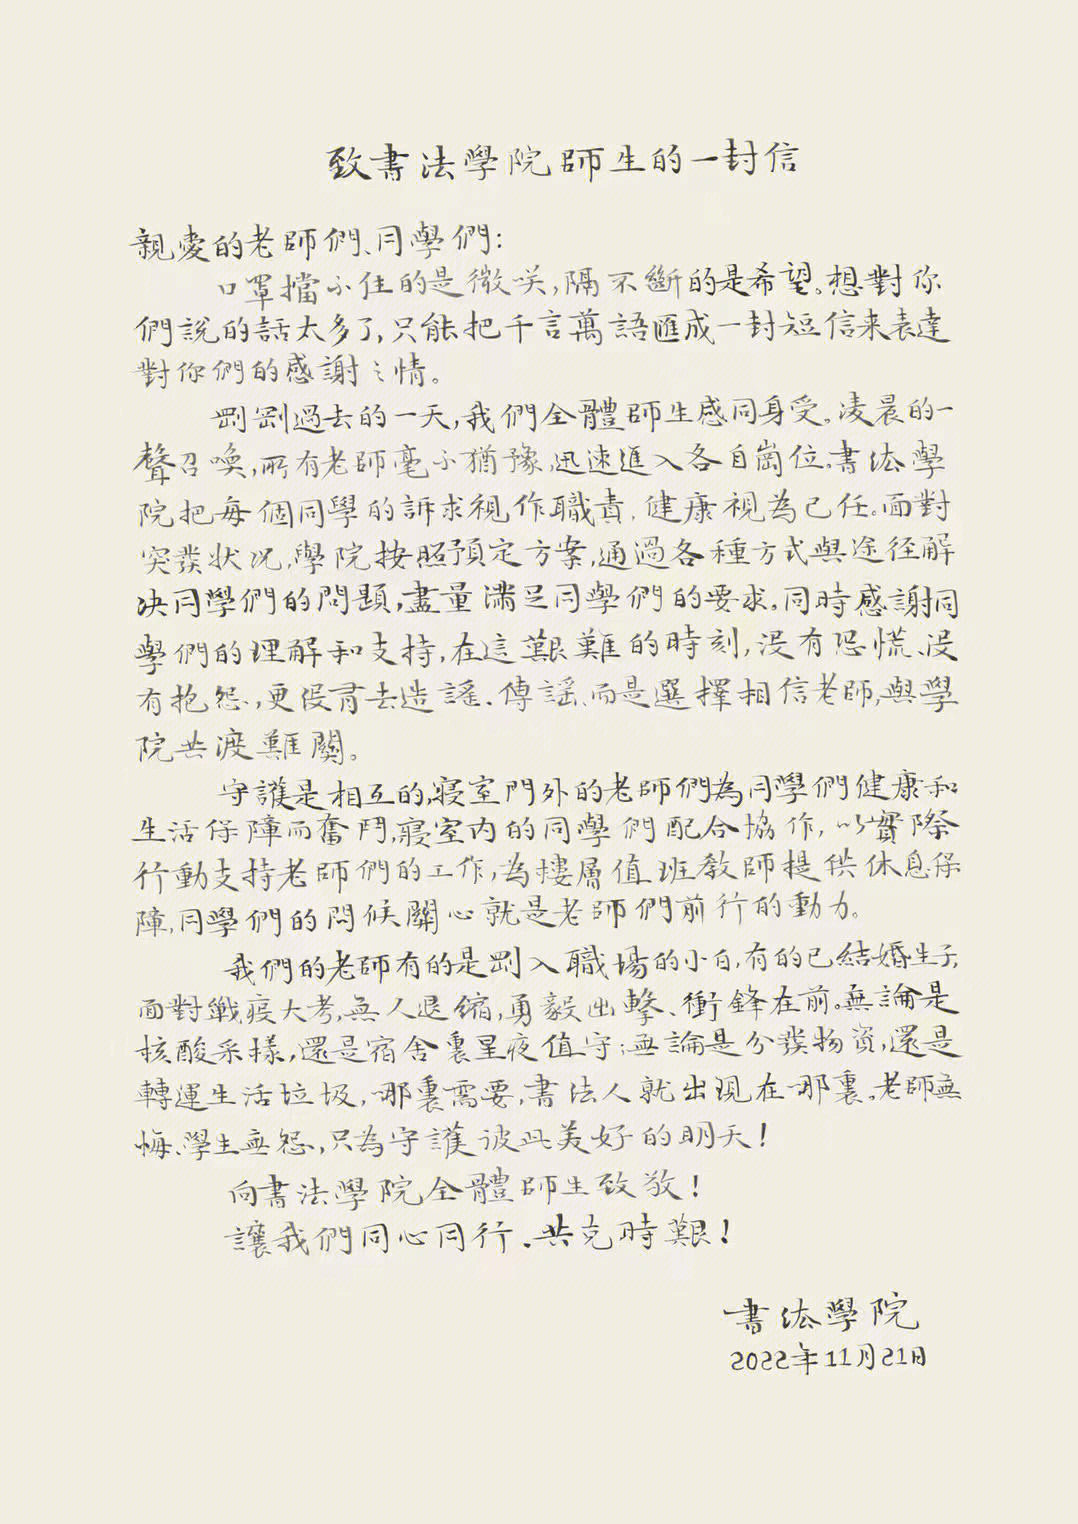 致書法學院師生的一封信
親愛的老師們、同學們：
口罩擋不住的是微笑，隔不斷的是希望。想對你
們說的話太多了，只能把千言萬語匯成一封短信來表達
對你們的感謝之情。
剛剛過去的一天，我們全體師生感同身受。凌晨的一
聲召喚，所有老師毫不猶豫，迅速進入各自崗位。書法學
院把每個同學的訴求視作職責，健康視為己任。面對
突發狀況，學院按照預定方案，通過各種方式與途徑解
決同學們的問題，盡量滿足同學們的要求。同時感謝同
學們的理解和支持，在這艱難的時刻，沒有恐慌、沒
有抱怨，更沒有去造謠、傳謠，而是選擇相信老師，與學
院共渡難關。
守護是相互的，寢室門外的老師們為同學們健康和
生活保障而奮鬥，寢室內的同學們配合協作，以實際
行動支持老師們的工作，為樓層值班教師提供休息保
障，同學們的問候關心就是老師們前行的動力。
我們的老師有的是剛入職場的小白，有的已結婚生子，
面對戰疫大考，無人退縮，勇毅出擊、衝鋒在前。無論是
核酸采樣，還是宿舍裏星夜值守；無論是分發物資，還是
轉運生活垃圾，哪裏需要，書法人就出現在哪裏。老師無
悔、學生無怨，只為守護彼此美好的明天！
向書法學院全體師生致敬！
讓我們同心同行、共克時艱！
書法學院
2022年11月21日